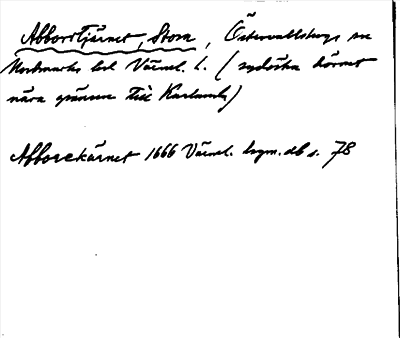 Abborrtjärnet, Stora, Östervallskogs sn
Nordmarks hd Värml. l. (sydöstra hörnet
nära gränsen till Karlanda)
Abborekärnet 1666 Värml. hsgm. db s. 78